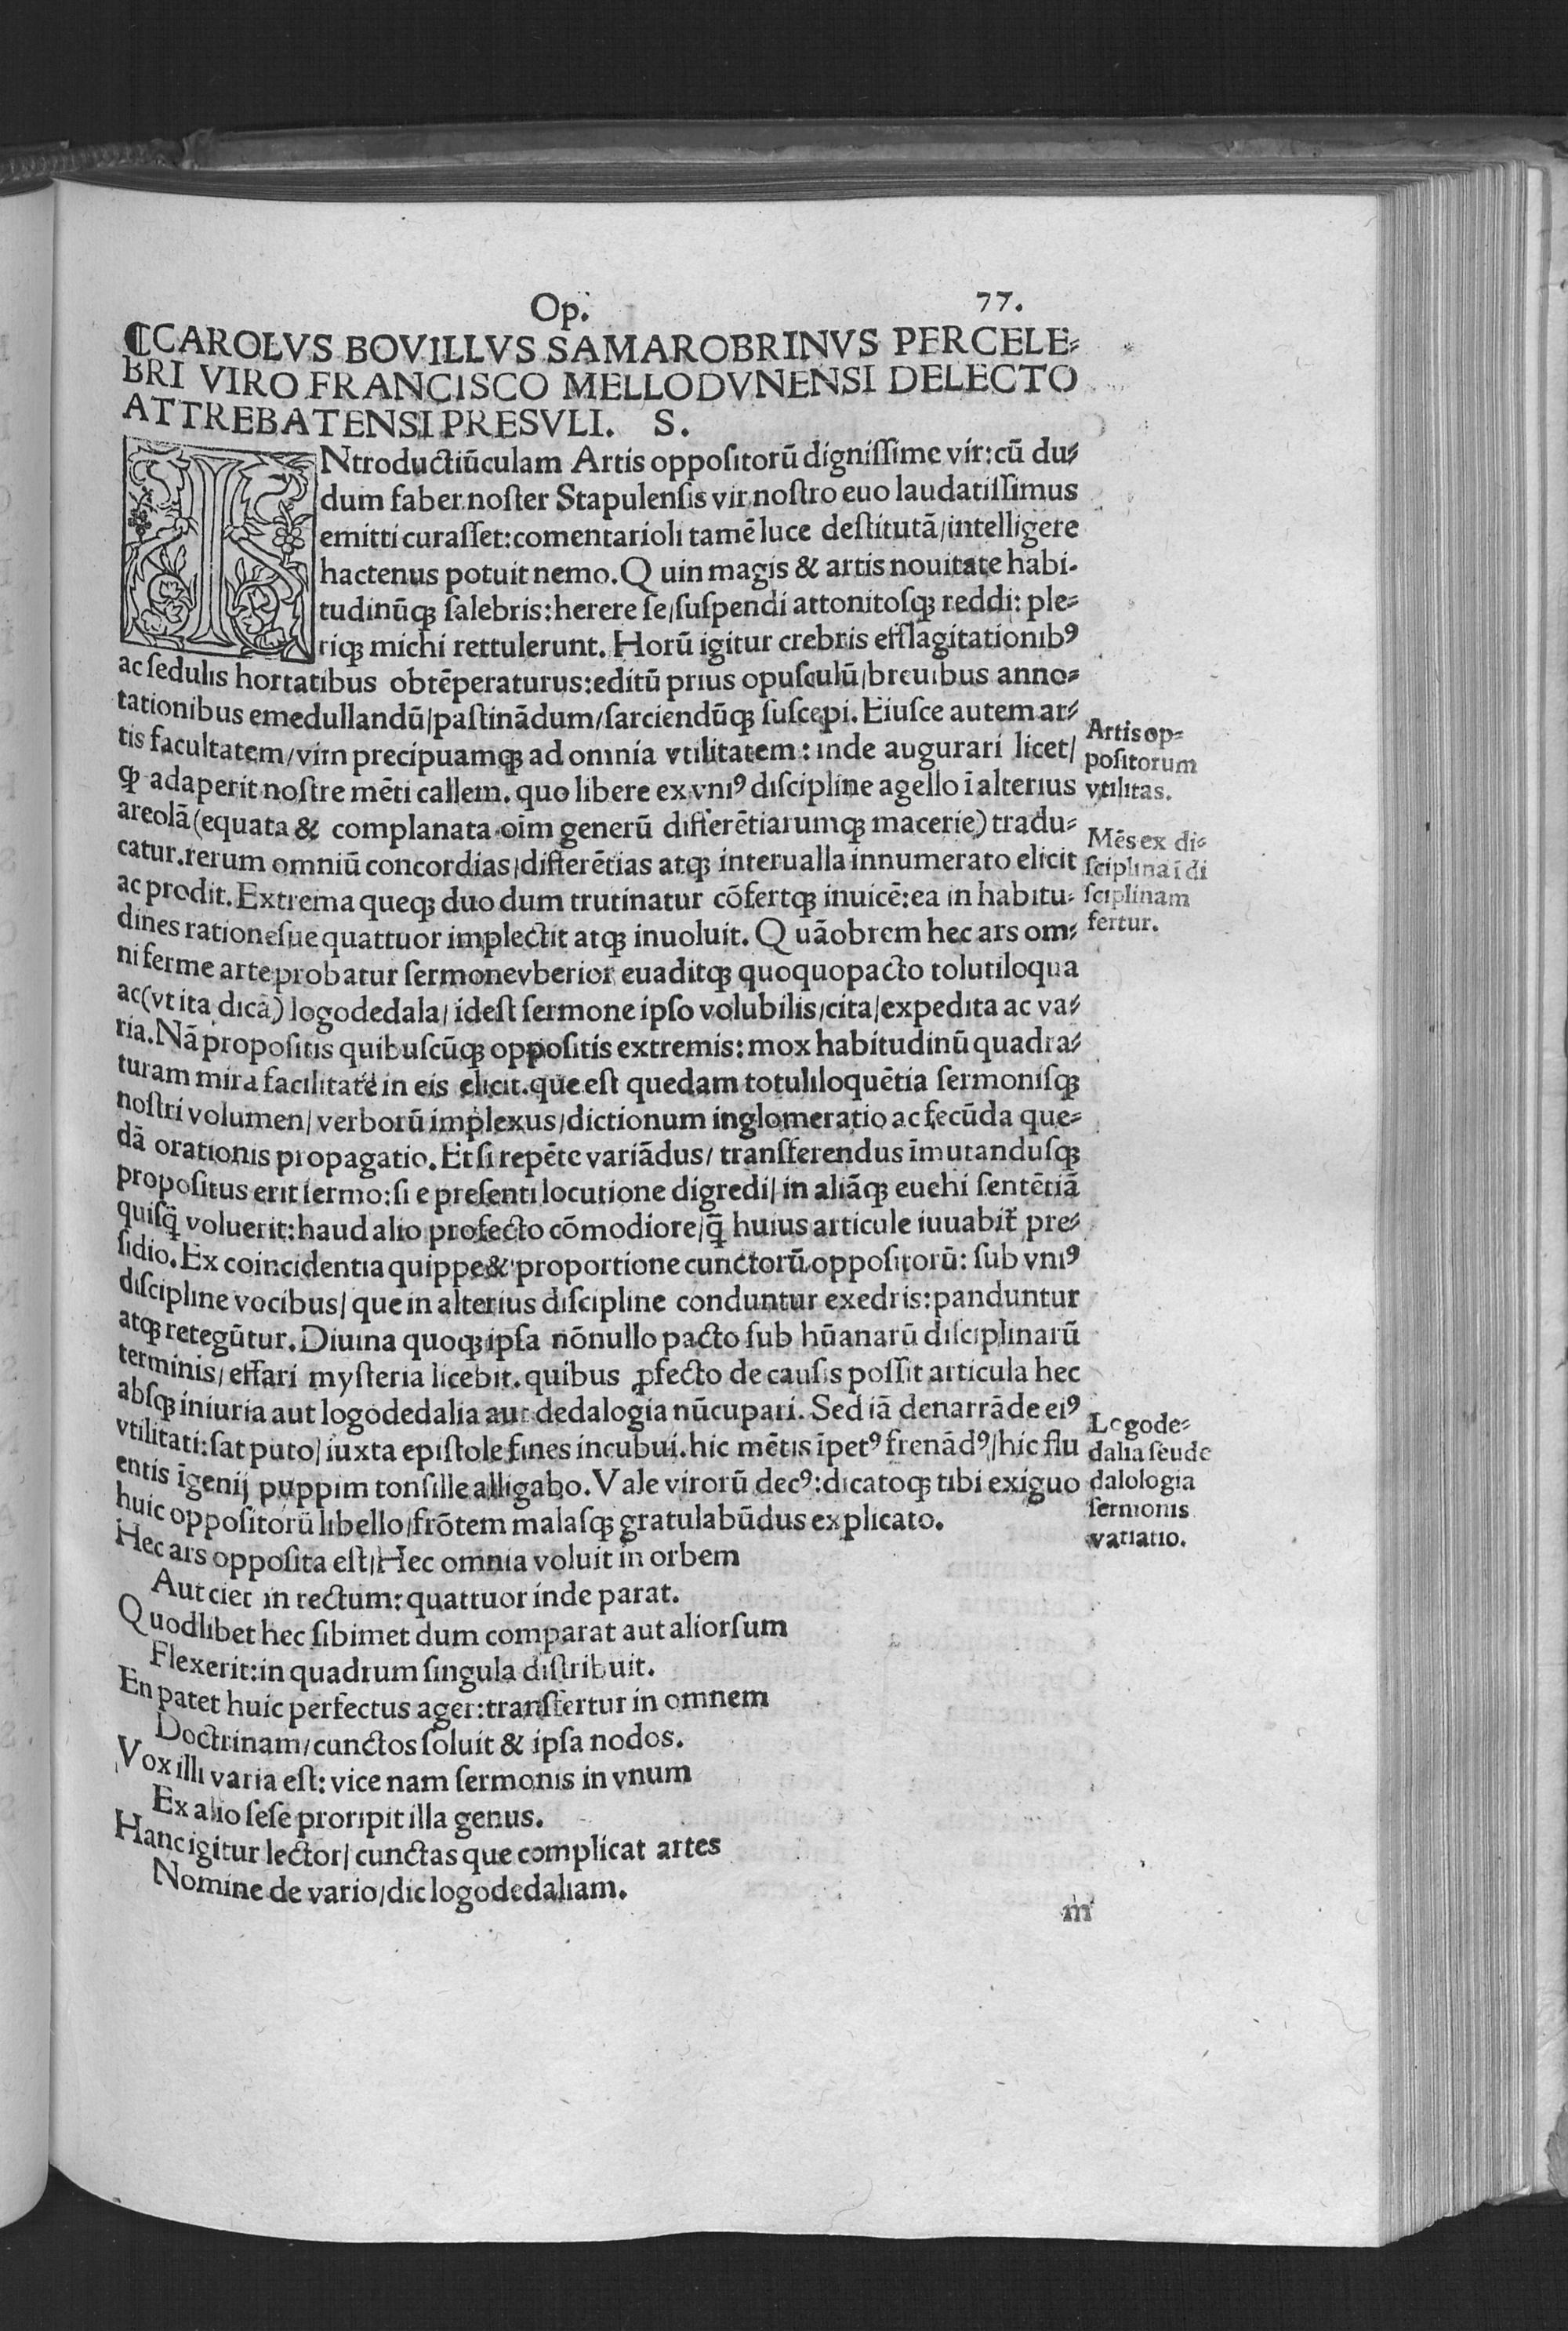 Op. 77.
⁌CAROLVS BOVILLVS SAMAROBRINVS PERCELE⸗
BRI VIRO FRANCISCO MELLODVNENSI DELECTO
ATTREBATENSI PRESVLI. S.
INtroductiūculam Artis oppositorū dignissime vir:cū du⸗
dum faber noster Stapulensis vir nostro euo laudatissimus
emitti curasset:comentarioli tamē luce destitutā/intelligere
hactenus potuit nemo.Quin magis & artis nouitate habi⸗
tudinūqꝫ salebris:herere se/suspendi attonitosqꝫ reddi: ple⸗
riqꝫ michi rettulerunt. Horū igitur crebris efflagitationibꝰ
ac sedulis hortatibus obtēperaturus:editū prius opusculū/breuibus anno⸗
tationibus emedullandū/pastinādum/sarciendūqꝫ suscepi. Eiusce autem ar⸗
tis facultatem/vim precipuamqꝫ ad omnia vtilitatem: inde augurari licet/
Artis op⸗
positorum
vtilitas.
qꝫ adaperit nostre mēti callem.quo libere ex vniꝰ discipline agello ī alterius
areolā(equata & complanata oīm generū differētiarumqꝫ macerie)tradu⸗
catur.rerum omniū concordias/differētias atqꝫ interualla innumerato elicit
Mēs ex di⸗
sciplina ī di
sciplinam
fertur.
ac prodit.Extrema queqꝫ duo dum trutinatur cōfertqꝫ inuicē:ea in habitu⸗
dines rationesue quattuor implectit atqꝫ inuoluit. Quāobrem hec ars om⸗
ni ferme arte probatur sermone vberior euaditqꝫ quoquopacto tolutiloqua
ac(vt ita dicā)logodedala/idest sermone ipso volubilis/cita/expedita ac va⸗
ria.Nā propositis quibuscūqꝫ oppositis extremis:mox habitudinū quadra⸗
turam mira facilitate in eis elicit.que est quedam totuliloquētia sermonisqꝫ
nostri volumen/verborū implexus/dictionum inglomeratio ac fecūda que⸗
dā orationis propagatio.Et si repēte variādus/transferendus īmutandusqꝫ
propositus erit sermo:si e presenti locutione digredi/in aliāqꝫ euehi sentētiā
quisq̄ voluerit:haud alio profecto cōmodiore/q̄ huius articule iuuabit̄ pre⸗
sidio.Ex coincidentia quippe & proportione cunctorū oppositorū: sub vniꝰ
discipline vocibus/que in alterius discipline conduntur exedris:panduntur
atqꝫ retegūtur.Diuina quoqꝫ ipsa nōnullo pacto sub hūanarū disciplinarū
terminis/effari mysteria licebit.quibus ꝓfecto de causis possit articula hec
absqꝫ iniuria aut logodedalia aut dedalogia nūcupari.Sed iā denarrāde eiꝰ
Logode⸗
dalia seude
dalologia
sermonis
variatio.
vtilitati:sat puto/iuxta epistole fines incubui.hic mētis īpetꝰ frenādꝰ/hic flu
entis īgenij puppim tonsille alligabo.Vale virorū decꝰ:dicatoqꝫ tibi exiguo
huic oppositorū libello/frōtem malasqꝫ gratulabūdus explicato.
Hec ars opposita est/Hec omnia voluit in orbem
Aut ciet in rectum:quattuor inde parat.
Quodlibet hec sibimet dum comparat aut aliorsum
Flexerit:in quadrum singula distribuit.
En patet huic perfectus ager:transfertur in omnem
Doctrinam/cunctos soluit & ipsa nodos.
Vox illi varia est:vice nam sermonis in vnum
Ex alio sese proripit illa genus.
Hanc igitur lector/cunctas que complicat artes
Nomine de vario/dic logodedaliam.
m